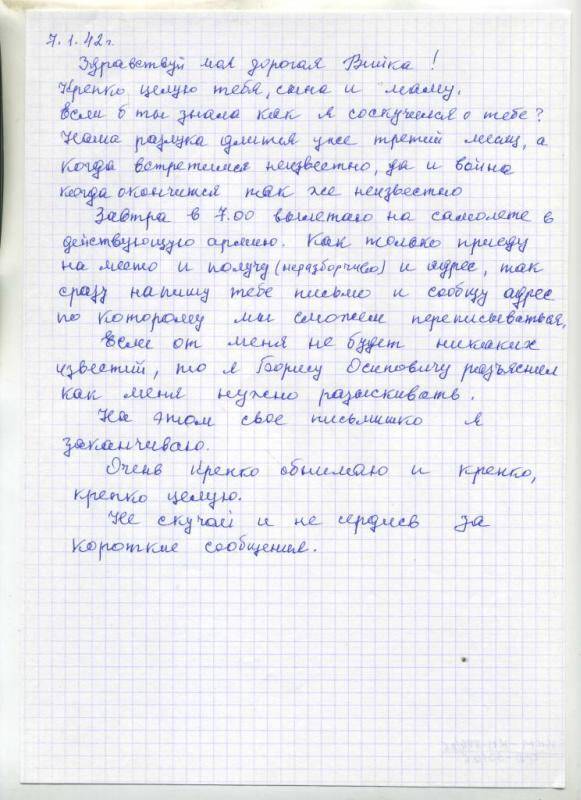 7.1.42г.
Здравствуй моя дорогая Вийка!
Крепко целую тебя, сына и маму.
Если б ты знала как я соскучился о тебе?
Наша разлука длится уже третий месяц, а
когда встретимся неизвестно, да и война
когда окончится так же неизвестно
Завтра в 7.00 вылетаю на самолете в
действующую армию. Как только приеду
на место и получу (неразборчиво) и адрес, так
сразу напишу тебе письмо и сообщу адрес
по которому мы сможем переписываться.
Если от меня не будет никаких
известий, то я Борису Осиповичу разъяснил
как меня нужно разыскивать.
На этом свое письмишко я
заканчиваю.
Очень крепко обнимаю и крепко,
крепко целую.
Не скучай и не сердись за
короткие сообщения.